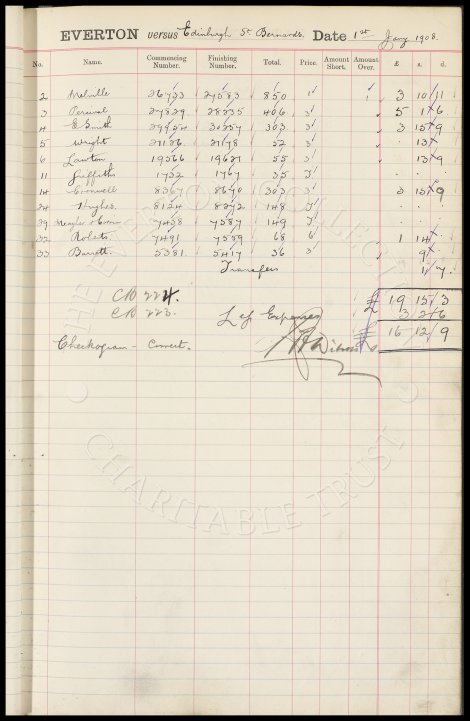 EVERTON versus Edinburgh St Bernards. Date 1st Jany 1908.
No. Name. Commencing Number. Finishing Number. Total. Price. Amount Short. Amount Over. £ s. d.
2 Melville 26733 27583 850 1 3 10 11
3 Percival 27829 28235 406 3 5 1 6
4 E Smith 29954 30257 303 3 3 15 9
5 Wright 21126 21178 52 3 13
6 Lawton 19566 19621 55 3 13 9
11 Griffiths 1732 1767 35 3
14 Cromwell 8367 8670 303 3 3 15 9
24 Hughes. 8124 8272 148 3
29 7438 7587 149 3
32 Roberts 7491 7559 68 6 1 14
33 Barrett. 5381 5417 36 3 9
Transfers 1 7
CB 224. £ 19 15 3
CB 223. Less Expenses 3 2 6
£ 16 12 9
Checkogram - Correct.
THE EVERTON COLLECTION
CHARITABLE TRUST